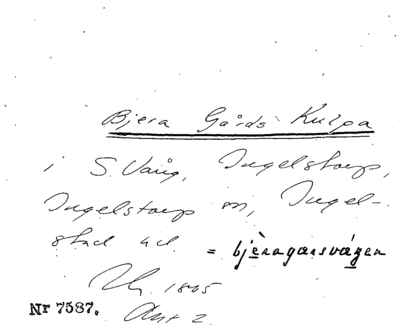 Bjera Gårds Kulpa
i S. Vång, Ingelstorp,
Ingelstorp sn, Ingel-
stad hd. = bjèragarsvágen
1845
Nr 7587. Akt 2